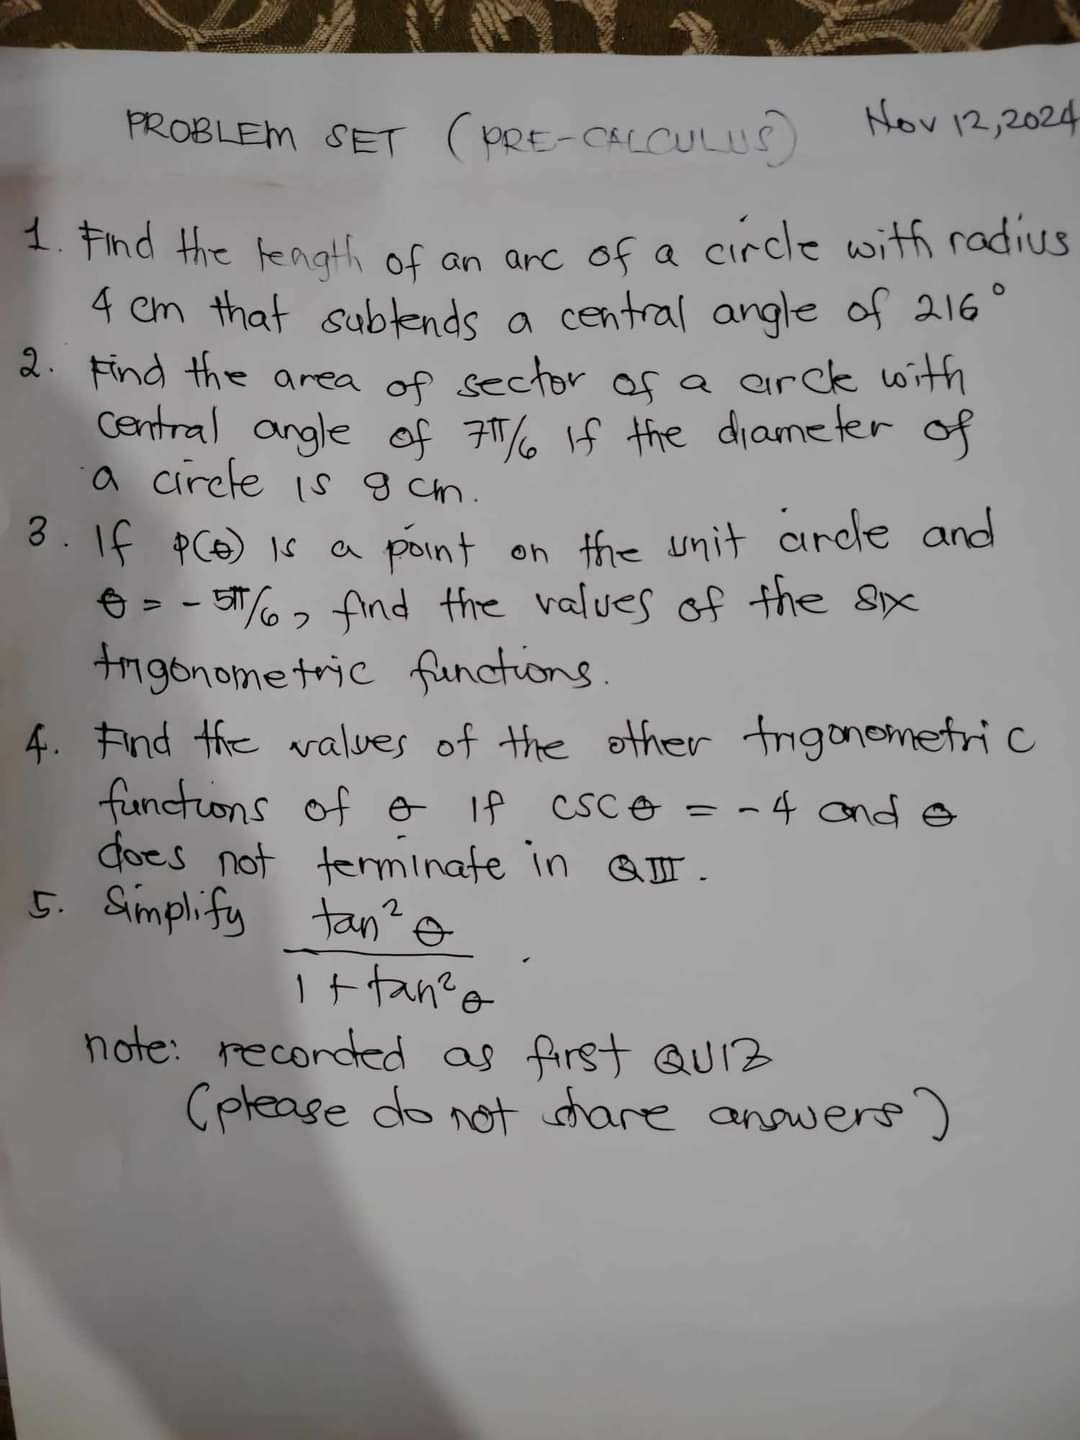 PROBLEM SET (PRE-CALCULUS) Nov 12, 2024
1. Find the length of an arc of a circle with radius
4 cm that subtends a central angle of 216°
2. Find the area of sector of a circle with
central angle of 7π/6 if the diameter of
a circle is 9 cm.
3. If P(θ) is a point on the unit circle and
θ = - 5π/6, find the values of the six
trigonometric functions.
4. Find the values of the other trigonometric
functions of θ if csc θ = -4 and θ
does not terminate in QIII.
5. Simplify tan² θ
1 + tan² θ .
note: recorded as first QUIZ
(please do not share answers)